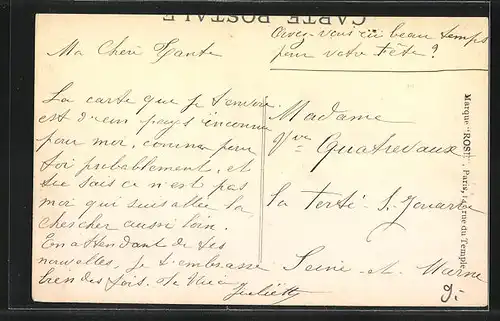 CARTE POSTALE
Avez-vous eu beau temps
pour votre Fête?
Ma Chère Tante
La carte que je t'envoie
est d'un pays inconnu
pour moi, comme pour
toi probablement, et
tu sais ce n'est pas
moi qui suis allée la
chercher aussi loin.
En attendant de tes
nouvelles, je t'embrasse
bien des fois.
Juliette
Madame
Vve Quatrevaux
la Ferté-s-Jouarre
Seine-et-Marne
9.-
Marque "ROSE", Paris, rue du Temple